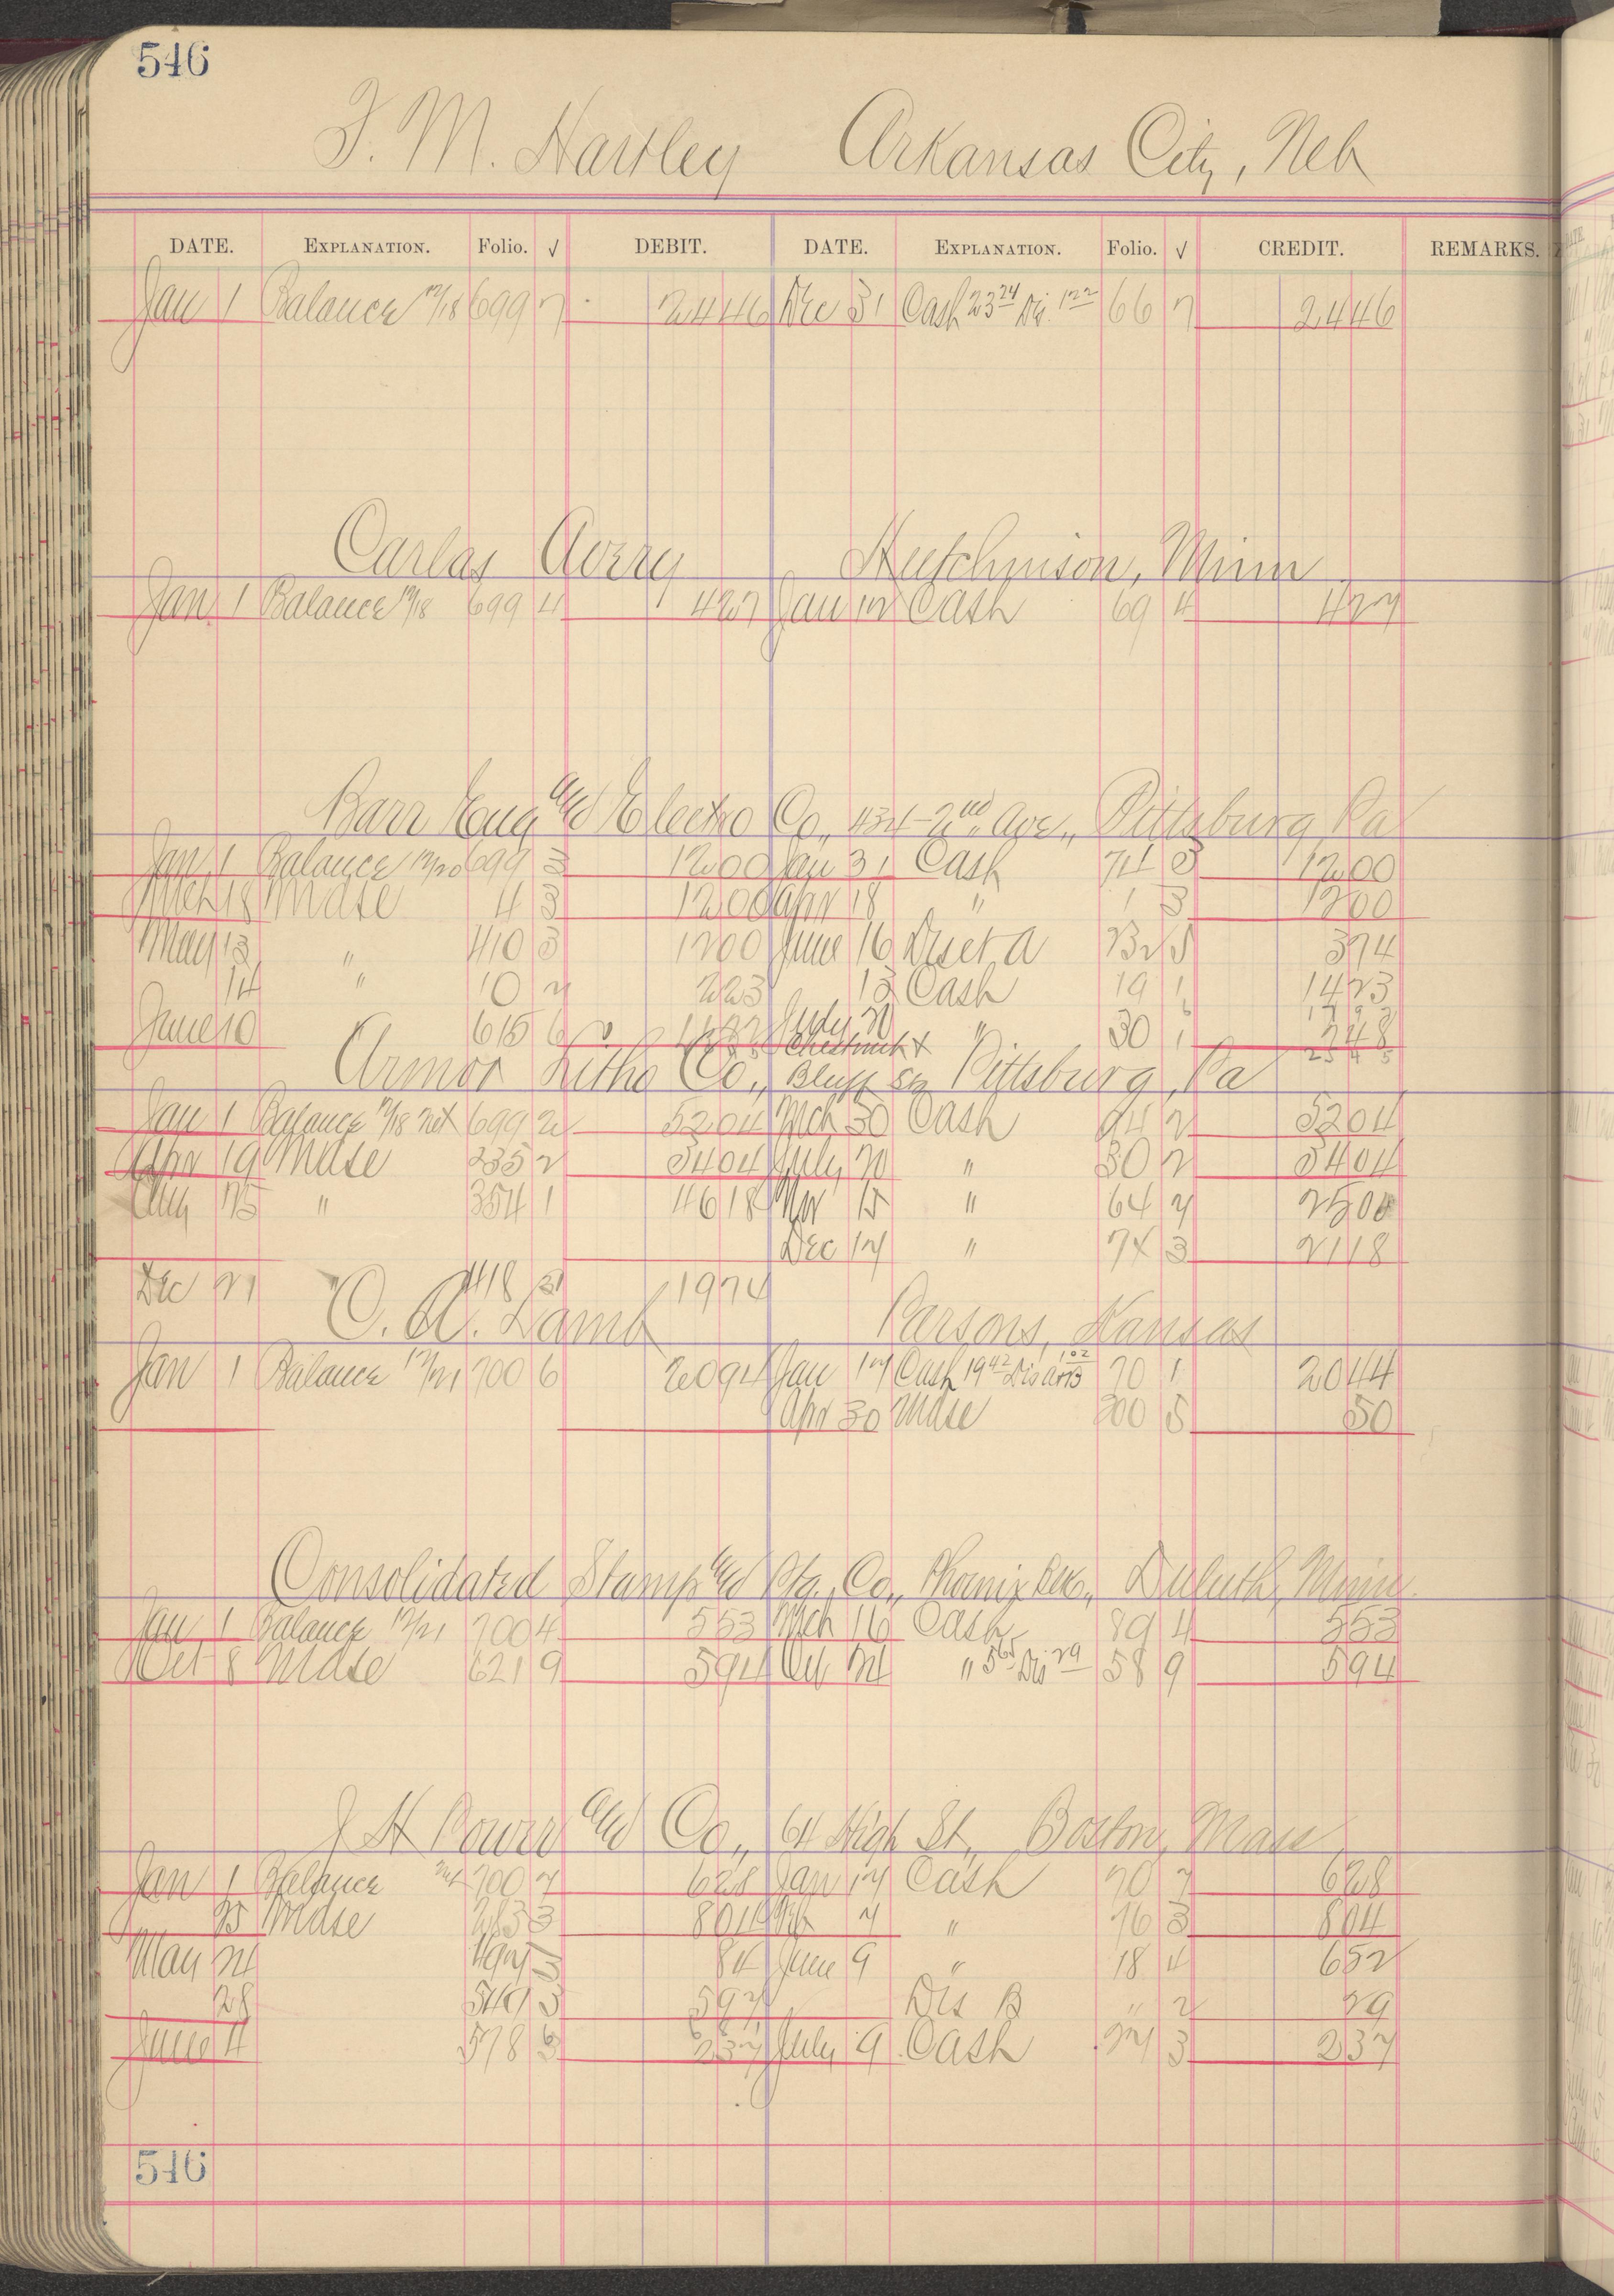 546
F. M. Hartley Arkansas City, Neb
DATE. EXPLANATION. Folio. √ DEBIT. DATE. EXPLANATION. Folio. √ CREDIT. REMARKS.
Jan 1 Balance 12/18 699 7 2446 Dec 31 Cash 23 24 Dis. 1 22 66 7 2446
Carlas Avery Hutchinson, Minn
Jan 1 Balance 12/18 699 4 427 Jan 12 Cash 69 4 427
Barr Eng and Electro Co., 434-2nd Ave., Pittsburg Pa
Jan 1 Balance 12/20 699 3 1200 Jan 31 Cash 74 3 1200
Mch 18 Mdse 4 3 1200 Apr 18 " 1 3 1200
May 13 " 410 3 1200 June 16 Disct A 232 5 374
14 " 10 2 223 13 Cash 19 1 1423
June 10 615 6 July 20 " 30 1 748
Armor Litho Co., Chestnut & Bluff Sts Pittsburg, Pa
Jan 1 Balance 12/18 Net 699 2 5204 Mch 30 Cash 94 2 5204
Apr 19 Mdse 235 2 5404 July 20 " 30 2 5404
Aug 25 " 354 1 4618 Nov 15 " 64 7 2500
Dec 17 " 74 3 2118
Dec 21 " 418 31 1974
O. A. Lamb Parsons, Kansas
Jan 1 Balance 12/21 700 6 2094 Jan 17 Cash 19 42 Dis 1 02 70 1 2044
Apr 30 Mdse 300 5 50
Consolidated Stamp and Ptg. Co., Phoenix Blk., Duluth, Minn.
Jan 1 Balance 12/21 700 4 553 Mch 16 Cash 89 4 553
Oct 8 Mdse 621 9 594 Oct 24 " 5 65 Dis 29 58 9 594
J H Power and Co., 64 High St., Boston, Mass
Jan 1 Balance Net 700 7 628 Jan 17 Cash 70 7 628
25 Mdse 283 3 804 Feb 7 " 76 3 804
May 24 84 June 9 " 18 4 652
28 3 597 Dis B " 2 29
June 4 578 3 237 July 9 Cash 27 3 237
546